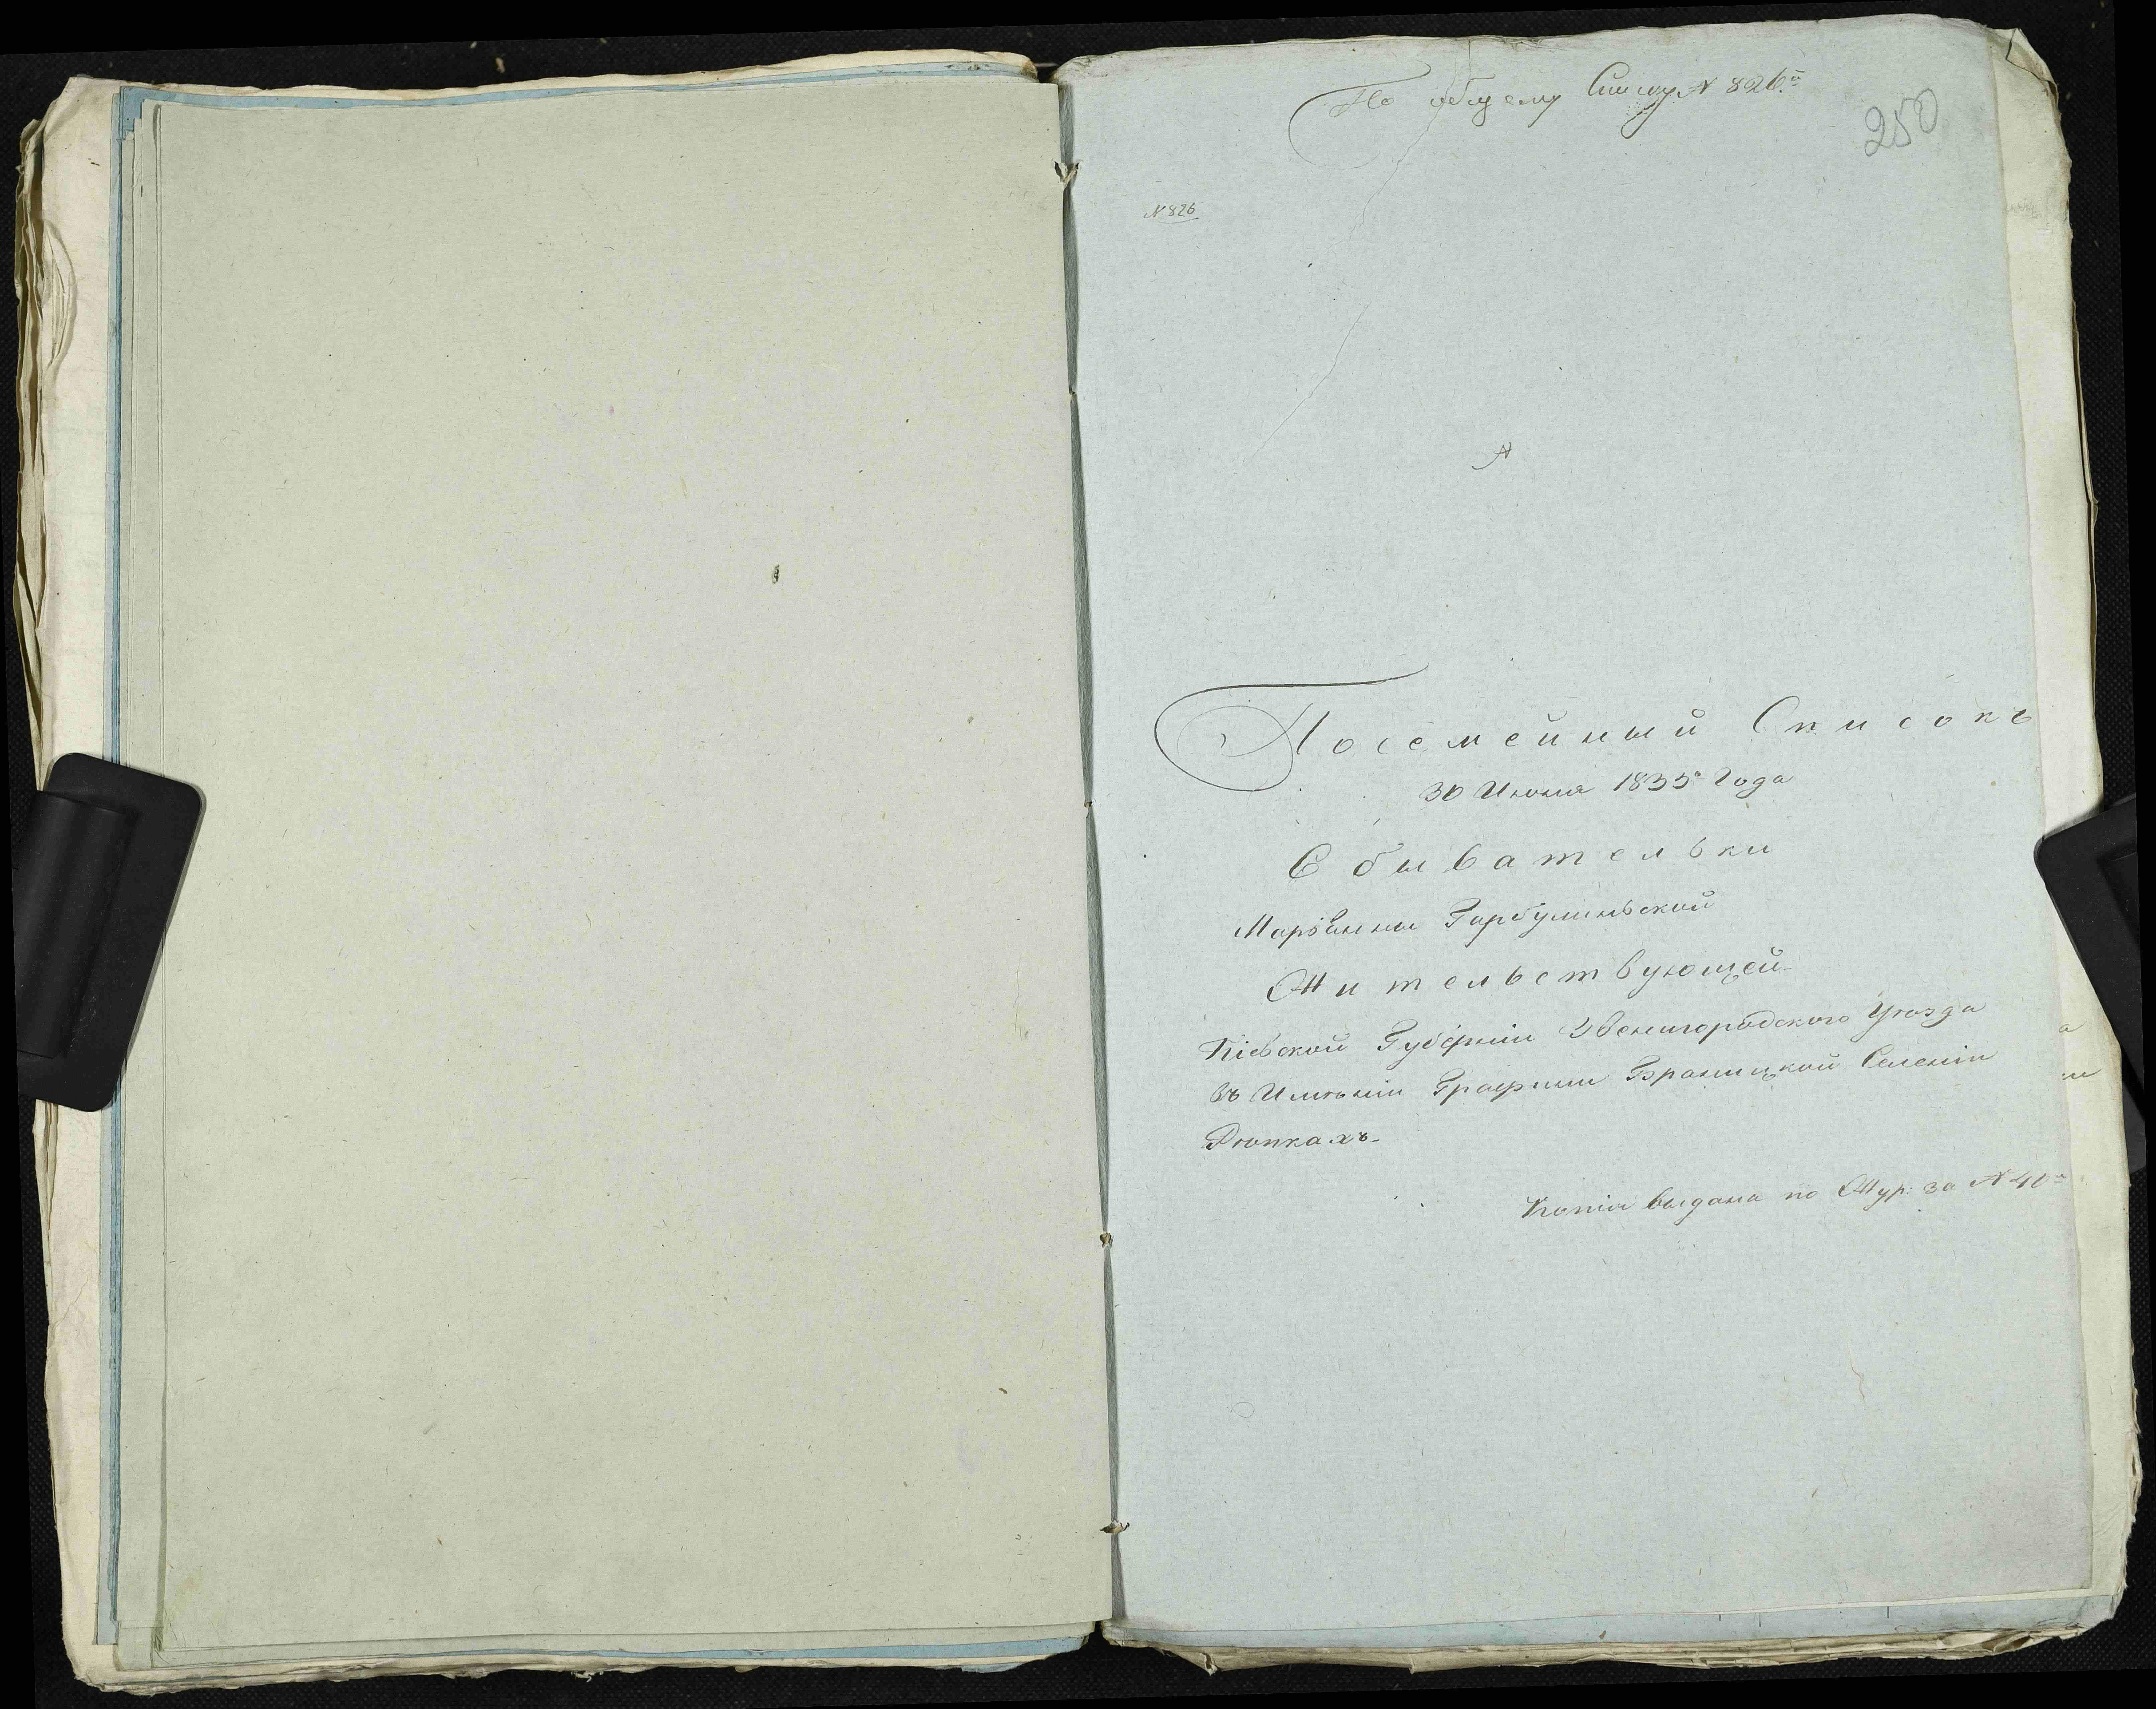 По общему Списку № 826й
250
№ 826
№
Посемейный Списокъ
30 Июня 1835 Года
Обывательки
Марiанны Гарбулинской
Жительствующей
Кіевской Губерніи Звенигородского Уѣзда
въ Имѣніи Графини Браницкой Селеніи
Рѣпкахъ
Копія выдана по Жур: за № 40